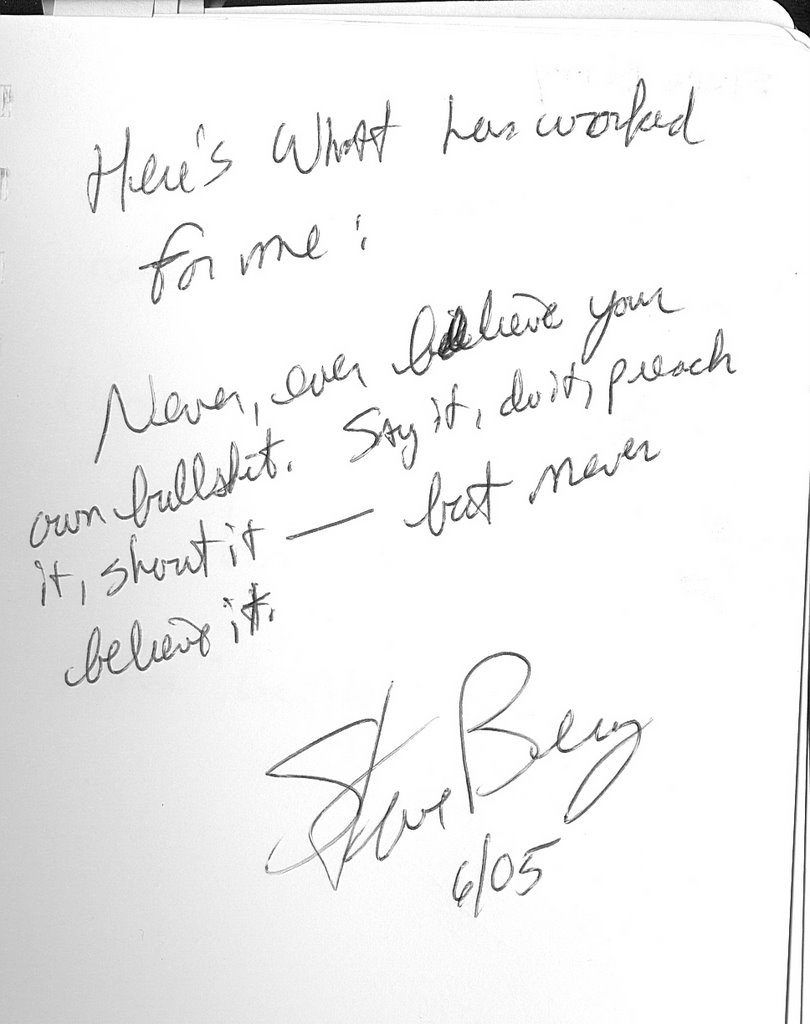 Here's What has worked
for me:
Never, ever believe your
own bullshit. Say it, do it, preach
it, shout it — but never
believe it.
Steve Berry
6/05